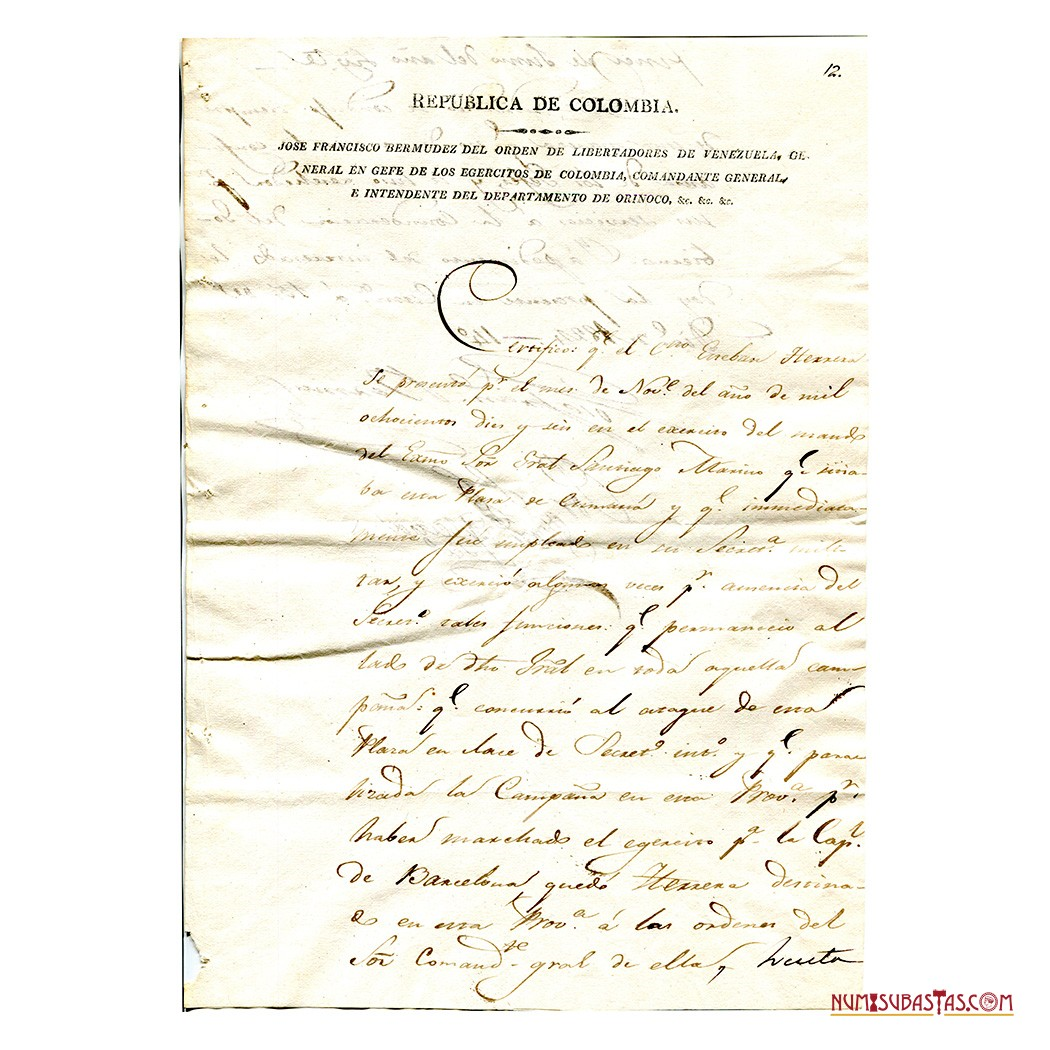 12.
REPUBLICA DE COLOMBIA.
JOSE FRANCISCO BERMUDEZ DEL ORDEN DE LIBERTADORES DE VENEZUELA, GE-
NERAL EN GEFE DE LOS EGERCITOS DE COLOMBIA, COMANDANTE GENERAL,
E INTENDENTE DEL DEPARTAMENTO DE ORINOCO, &c. &c. &c.
Certifico: qe. el Cno Esteban Herrera
se presentó pr. el mes de Nove. del año de mil
ochocientos dies y seis en el exercito del mando
del Exmo Sor Gral Santiago Mariño qe. sitia-
ba esta Plasa de Cumaná y qe. immediata-
mente fue empleado en su Secreta. mili-
tar, y exerció algunas veces pr. ausencia del
Secreto. tales funciones: qe. permanecio al
lado de dho Gral en toda aquella cam-
paña: qe. concurrió al ataque de esta
Plaza en clace de Secreto. into. y qe. para-
lizada la Campaña en esta Prova. pr.
haber marchado el egercito pa. la Capl.
de Barcelona, quedó Herrera destina-
do en esta Prova. á las ordenes del
Sor Comandte. gral de ella, hasta
NUMISUBASTAS.COM